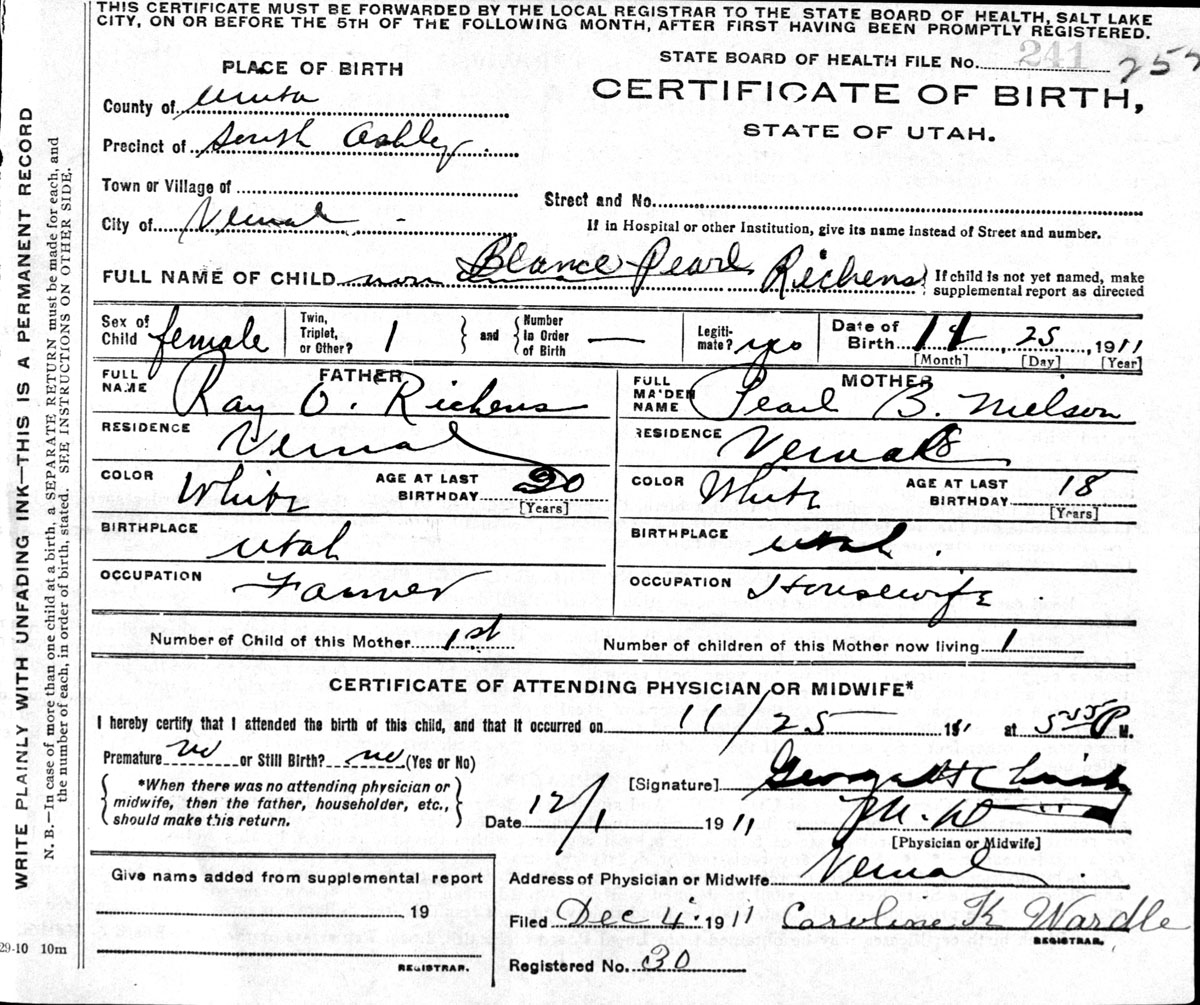 THIS CERTIFICATE MUST BE FORWARDED BY THE LOCAL REGISTRAR TO THE STATE BOARD OF HEALTH, SALT LAKE
CITY, ON OR BEFORE THE 5TH OF THE FOLLOWING MONTH, AFTER FIRST HAVING BEEN PROMPTLY REGISTERED.
WRITE PLAINLY WITH UNFADING INK—THIS IS A PERMANENT RECORD
N. B.—In case of more than one child at a birth, a SEPARATE RETURN must be made for each, and
the number of each, in order of birth, stated. SEE INSTRUCTIONS ON OTHER SIDE.
STATE BOARD OF HEALTH FILE No. 241
PLACE OF BIRTH
CERTIFICATE OF BIRTH,
STATE OF UTAH.
County of Uinta
Precinct of South Ashley
Town or Village of
Street and No.
City of Vernal
If in Hospital or other Institution, give its name instead of Street and number.
FULL NAME OF CHILD Blance Pearl Richens
If child is not yet named, make
supplemental report as directed
Sex of Child female
Twin, Triplet, or Other? 1 and Number in Order of Birth —
Legitimate? yes
Date of Birth 11 25, 1911
[Month] [Day] [Year]
FATHER
FULL NAME Ray O. Richens
RESIDENCE Vernal
COLOR White AGE AT LAST BIRTHDAY 20
[Years]
BIRTHPLACE Utah
OCCUPATION Farmer
MOTHER
FULL MAIDEN NAME Pearl B. Nielson
RESIDENCE Vernal
COLOR White AGE AT LAST BIRTHDAY 18
[Years]
BIRTHPLACE Utah.
OCCUPATION Housewife
Number of Child of this Mother 1st
Number of children of this Mother now living 1
CERTIFICATE OF ATTENDING PHYSICIAN OR MIDWIFE*
I hereby certify that I attended the birth of this child, and that it occurred on 11/25 191 at P M.
Premature no or Still Birth? no (Yes or No)
*When there was no attending physician or
midwife, then the father, householder, etc.,
should make this return.
[Signature]
M. D
Date 12/1 1911
[Physician or Midwife]
Address of Physician or Midwife Vernal.
Give name added from supplemental report
19
REGISTRAR.
Filed Dec 4 1911 Caroline K Wardle
REGISTRAR.
Registered No. 30
29-10 10m